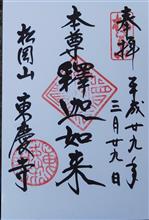 奉拝
平成廿九年
三月廿九日
本尊
釋迦如来
松岡山
東慶寺